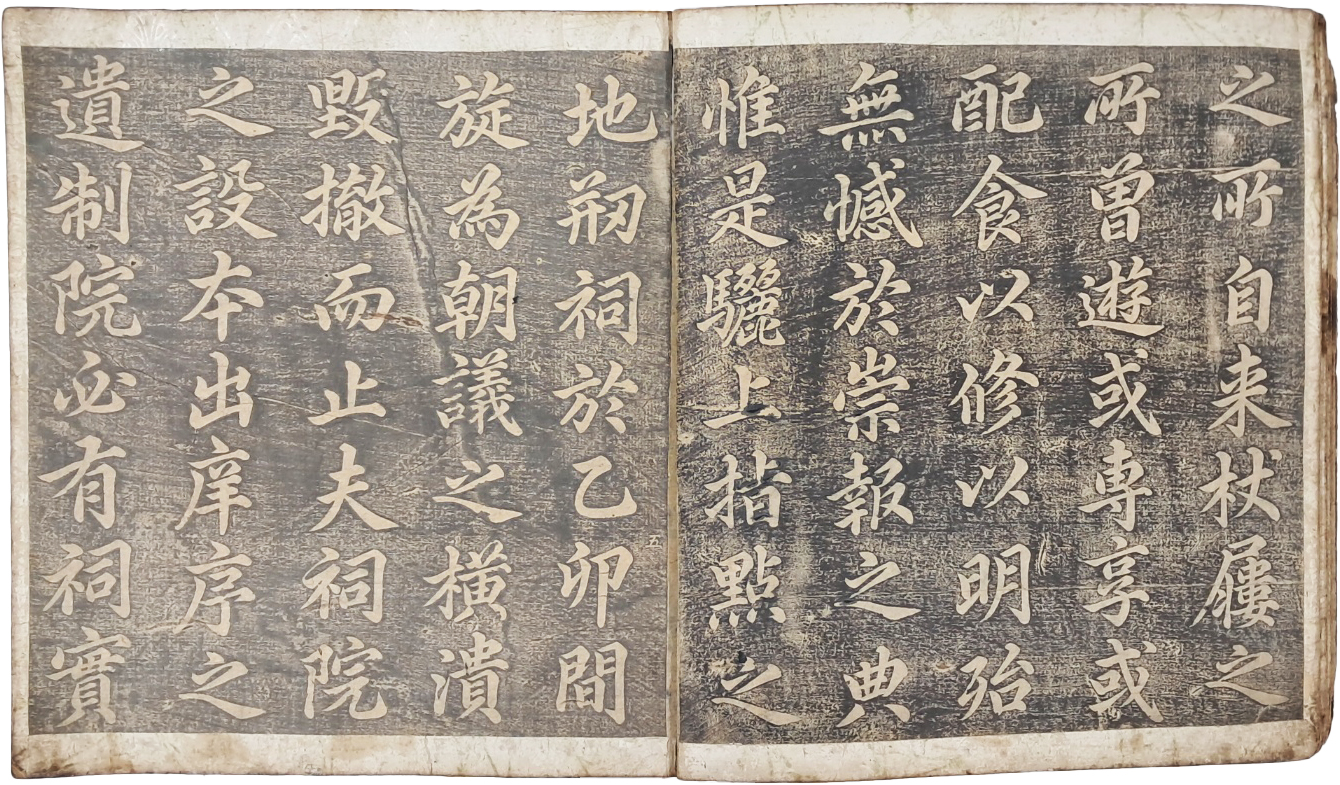 之所自来杖屨之
所曾遊或専享或
配食以修以明殆
無憾於崇報之典
惟是驪上指點之
五
地剏祠於乙卯間
旋為朝議之橫潰
毀撤而止夫祠院
之設夲出庠序之
遺制院必有祠實